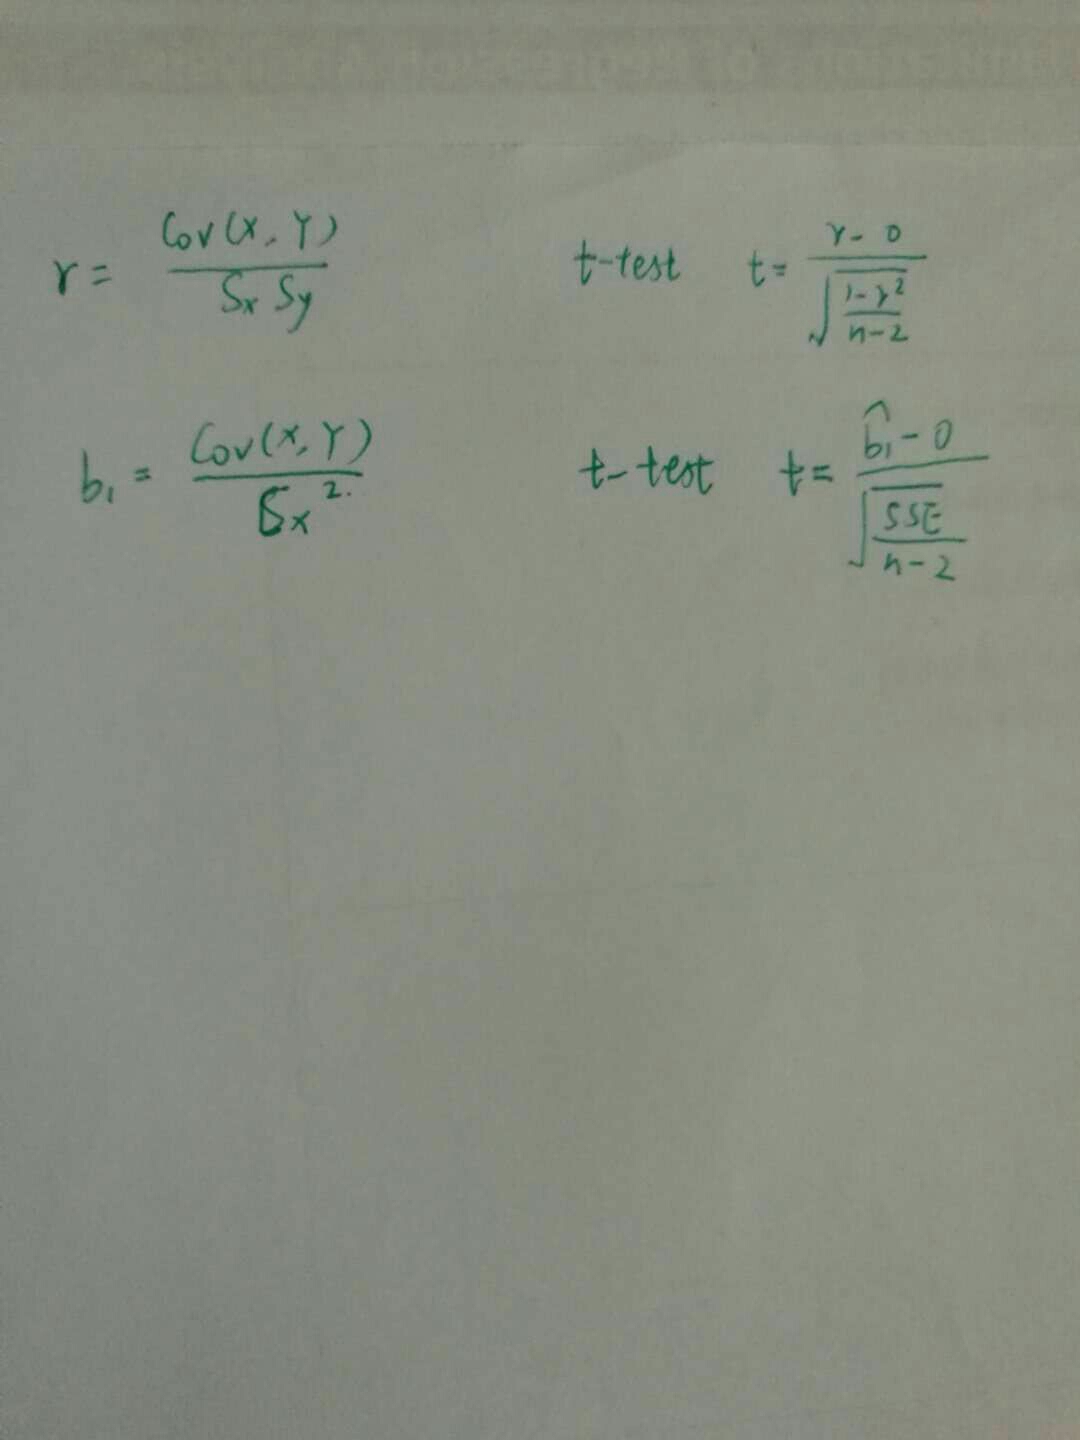 r = Cov(X, Y) / Sx Sy    t-test    t = r - 0 / √(1-r² / n-2)
b₁ = Cov(X, Y) / Sx²    t-test    t = b̂₁ - 0 / √(SSE / n-2)